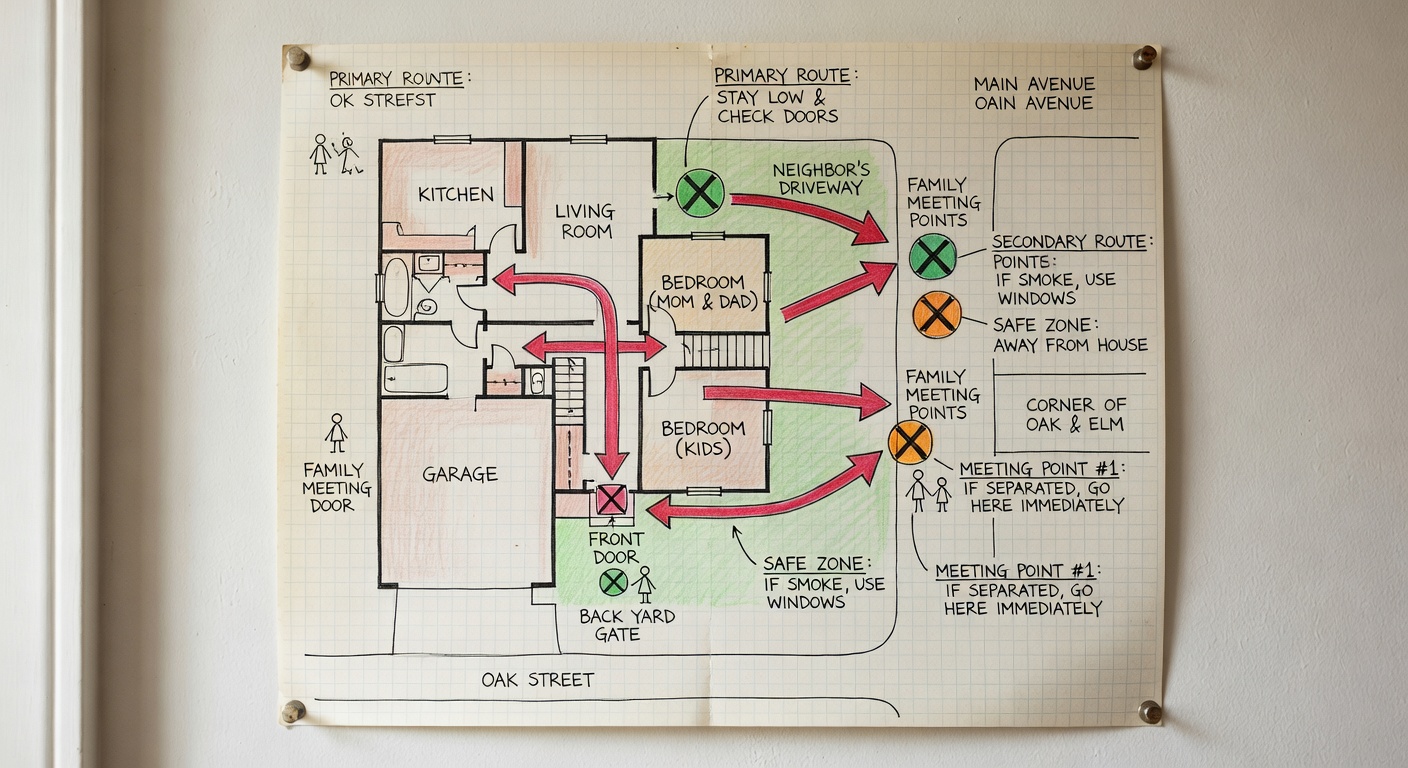 PRIMARY ROUNTE:
OK STREFST
PRIMARY ROUTE:
STAY LOW &
CHECK DOORS
MAIN AVENUE
OAIN AVENUE
KITCHEN
LIVING
ROOM
NEIGHBOR'S
DRIVEWAY
FAMILY
MEETING
POINTS
SECONDARY ROUTE:
POINTE:
IF SMOKE, USE
WINDOWS
BEDROOM
(MOM & DAD)
SAFE ZONE:
AWAY FROM HOUSE
FAMILY
MEETING
POINTS
CORNER OF
OAK & ELM
BEDROOM
(KIDS)
GARAGE
FAMILY
MEETING
DOOR
MEETING POINT #1:
IF SEPARATED, GO
HERE IMMEDIATELY
FRONT
DOOR
BACK YARD
GATE
SAFE ZONE:
IF SMOKE, USE
WINDOWS
MEETING POINT #1:
IF SEPARATED, GO
HERE IMMEDIATELY
OAK STREET